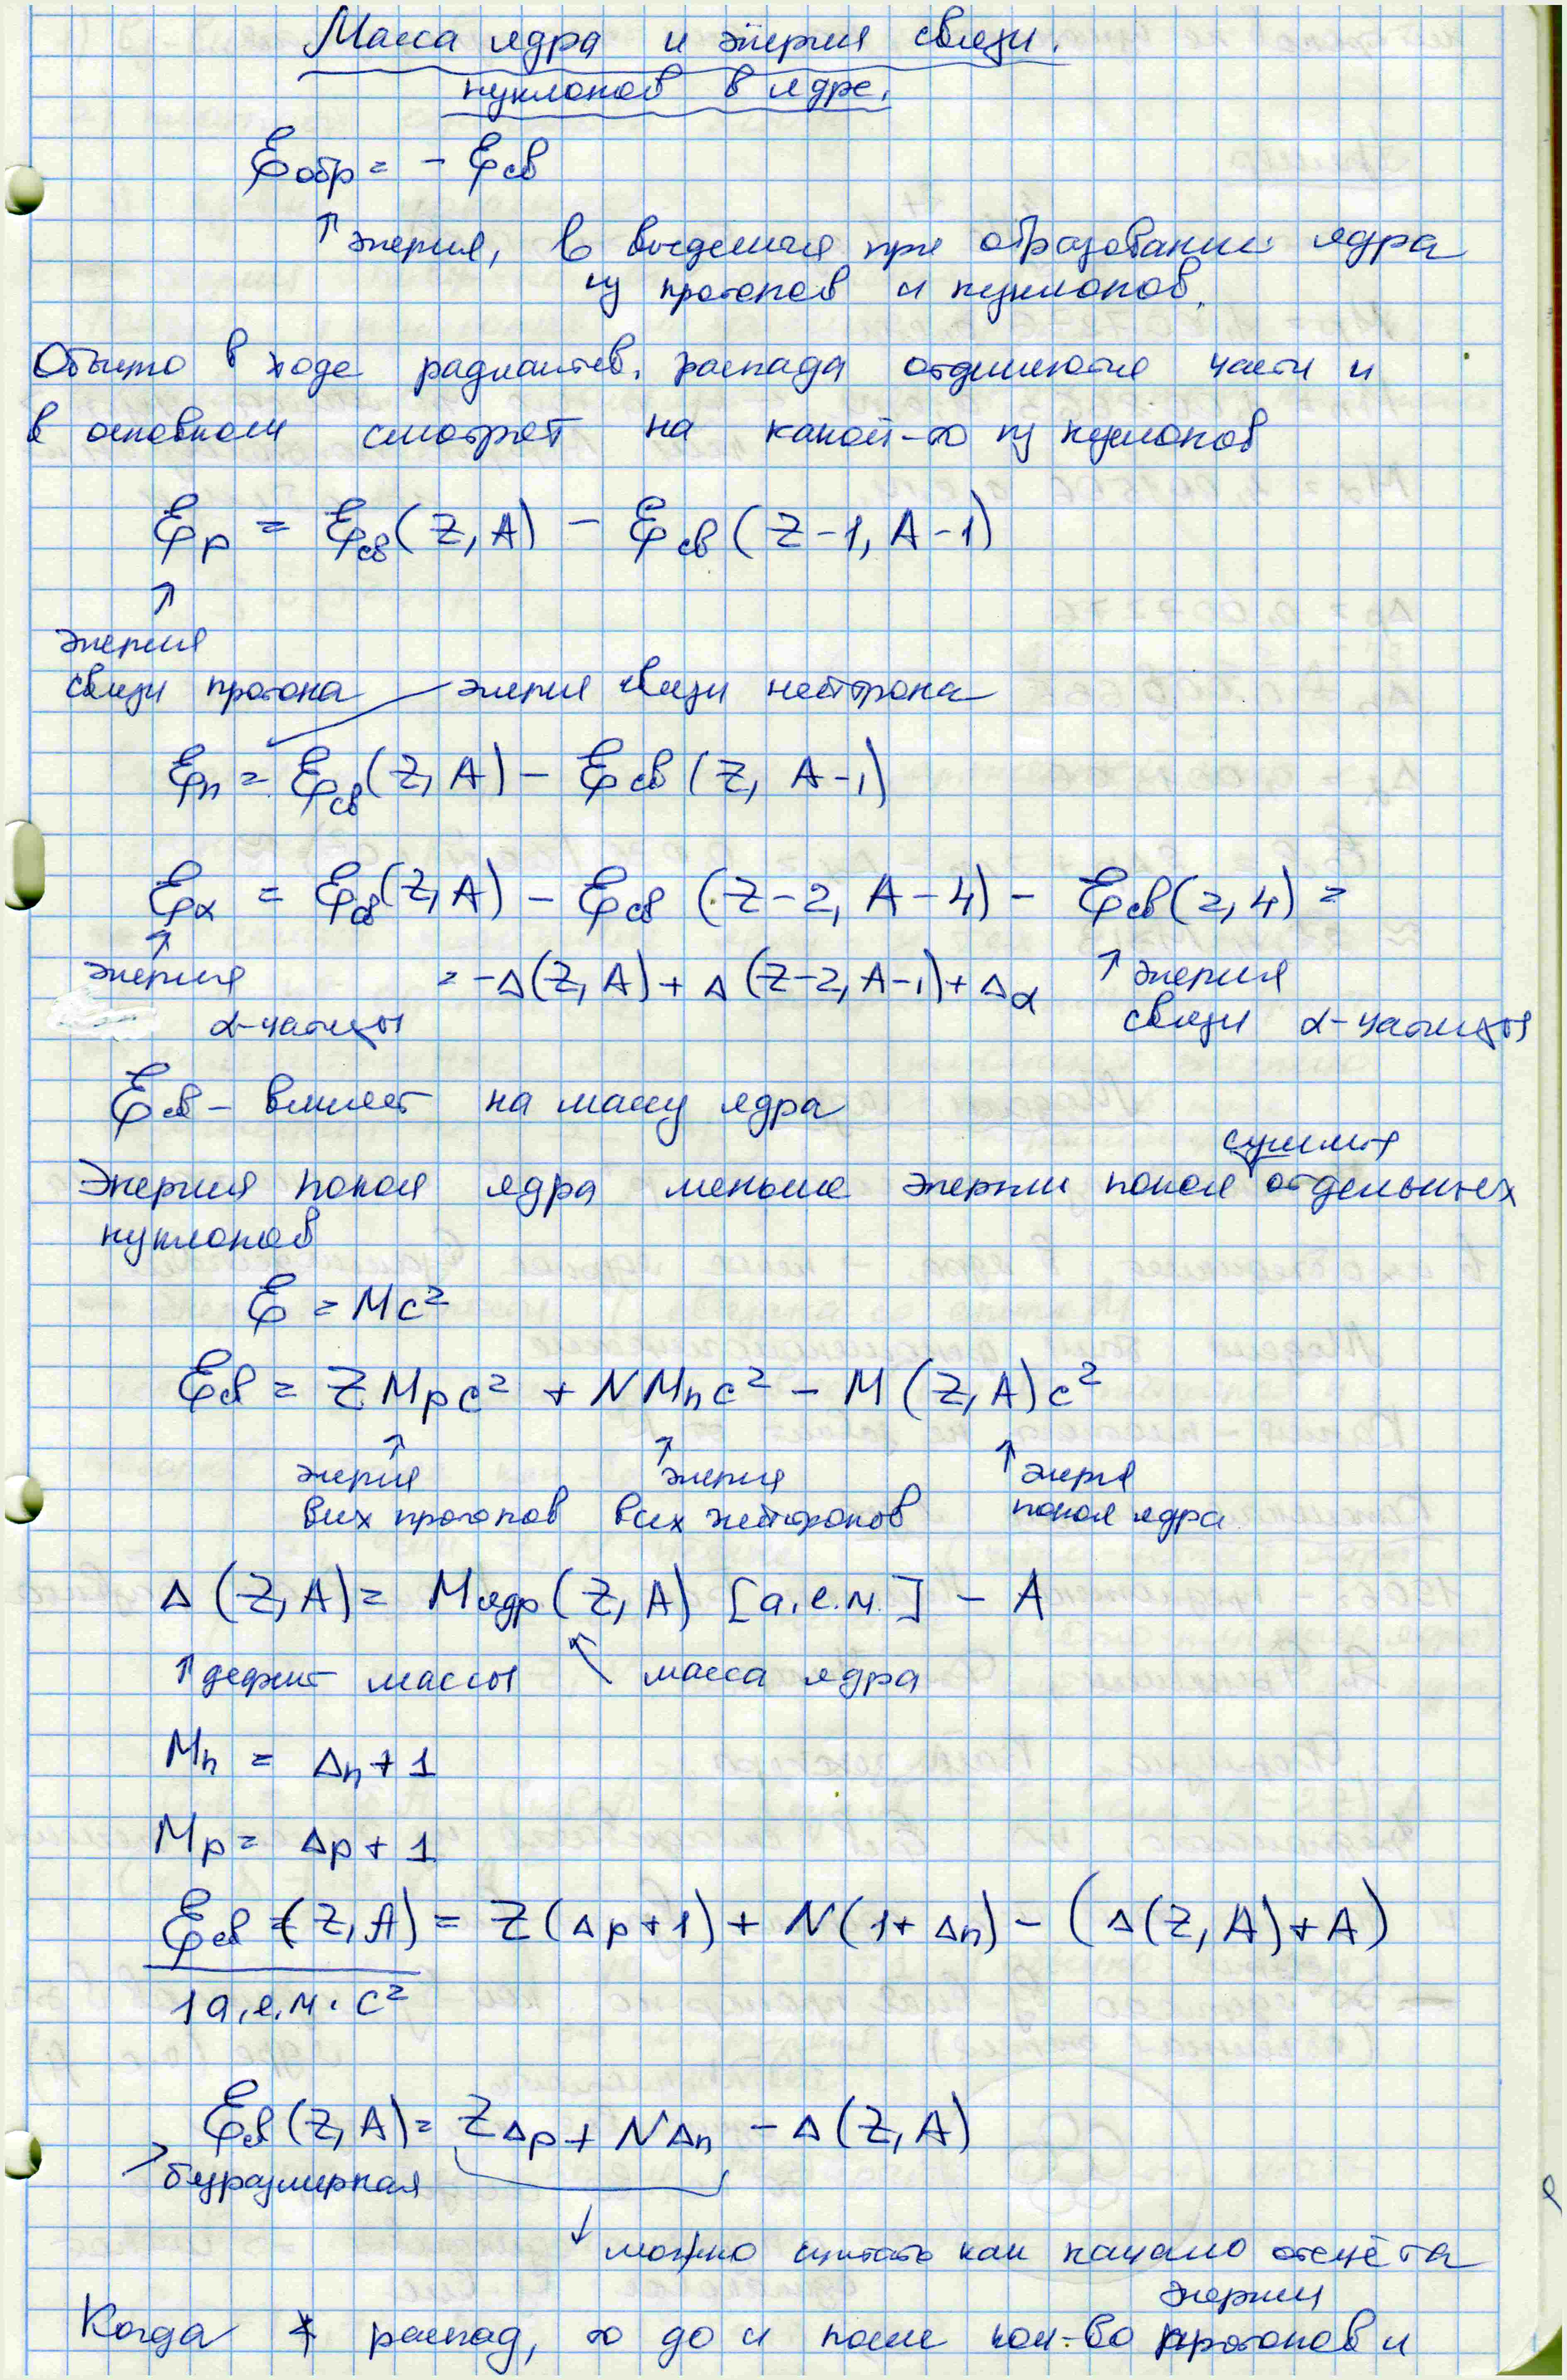 Масса ядра и энергия связи.
нуклонов в ядре.
Eобр = - Eсв
↑ энергия, выделяемая при образовании ядра
из протонов и нуклонов.
Обычно в ходе радиоактив. распада отделяются части и
в основном смотрят на какой-то из нуклонов
Ep = Eсв(Z, A) - Eсв(Z-1, A-1)
↑
энергия
связи протона энергия связи нейтрона
En = Eсв(Z, A) - Eсв(Z, A-1)
Eα = Eсв(Z, A) - Eсв (Z-2, A-4) - Eсв(2, 4) =
↑ энергия = -Δ(Z, A) + Δ(Z-2, A-1) + Δα ↑ энергия
α-частицы связи α-частицы
Eсв - влияет на массу ядра
сумме
Энергия покоя ядра меньше энергии покоя отдельных
нуклонов
E = Mc²
Eсв = ZMpc² + NMnc² - M(Z, A)c²
↑ ↑ ↑
энергия энергия энергия
всех протонов всех нейтронов покоя ядра
Δ(Z, A) = Mядр(Z, A) [а.е.м.] - A
↑ дефект массы масса ядра
Mn = Δn + 1
Mp = Δp + 1
Eсв (Z, A) = Z(Δp+1) + N(1+Δn) - (Δ(Z, A)+A)
1 а.е.м. · c²
Eсв(Z, A) = ZΔp + NΔn - Δ(Z, A)
безразмерная
↓ можно считать как начало отсчёта
энергии
Когда распад, то до и после кол-во протонов и